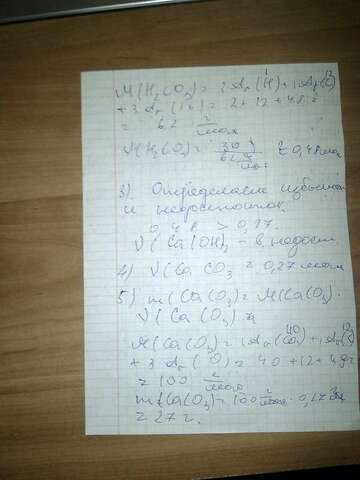 M(H₂CO₃) = 2Ar(H) + 1Ar(C)
+ 3Ar(O) = 2 + 12 + 48 =
= 62 г/моль
ν(H₂CO₃) = 30 г / 62 г/моль ≈ 0,48 моль
3) Определяем избыток
и недостаток.
0,48 > 0,27.
ν(Ca(OH)₂ - в недост.
4) ν(CaCO₃ = 0,27 моль
5) m(CaCO₃) = M(CaCO₃) ·
ν(CaCO₃)
M(CaCO₃) = 1Ar(Ca) + 1Ar(C)
+ 3Ar(O) = 40 + 12 + 48 =
= 100 г/моль
m(CaCO₃) = 100 г/моль · 0,27
= 27 г.